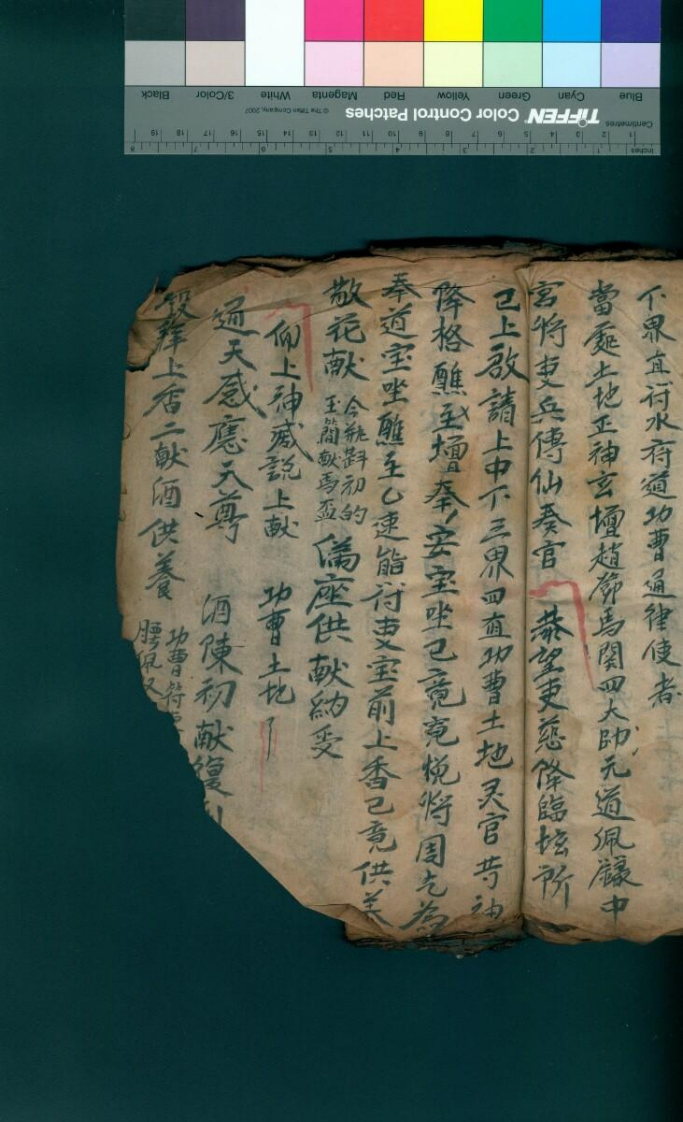 下界直符水府道功曹通律使者
當處土地正神玄壇趙鄧馬関四大帥元道佩籙中
宮將吏兵傳仙奏官 恭望吏慈降臨坛所
已上啟請上中下三界四直功曹土地灵官苄神
降格醮至壇奉安宝坐已竟竟恱將周志為
奉道宝坐醮至乙速能符吏宝前上香已竟供羙
散花献 今斟初的
玉簡献馬盃 俻座供献納受
仰上神威説上献 功曹土地了
通天感應天尊 酒陳初献復
上香二献酒供養 功曹符
腰佩
TIFFEN Color Control Patches
© The Tiffen Company, 2007
Centimetres
Inches
Blue Cyan Green Yellow Red Magenta White 3/Color Black